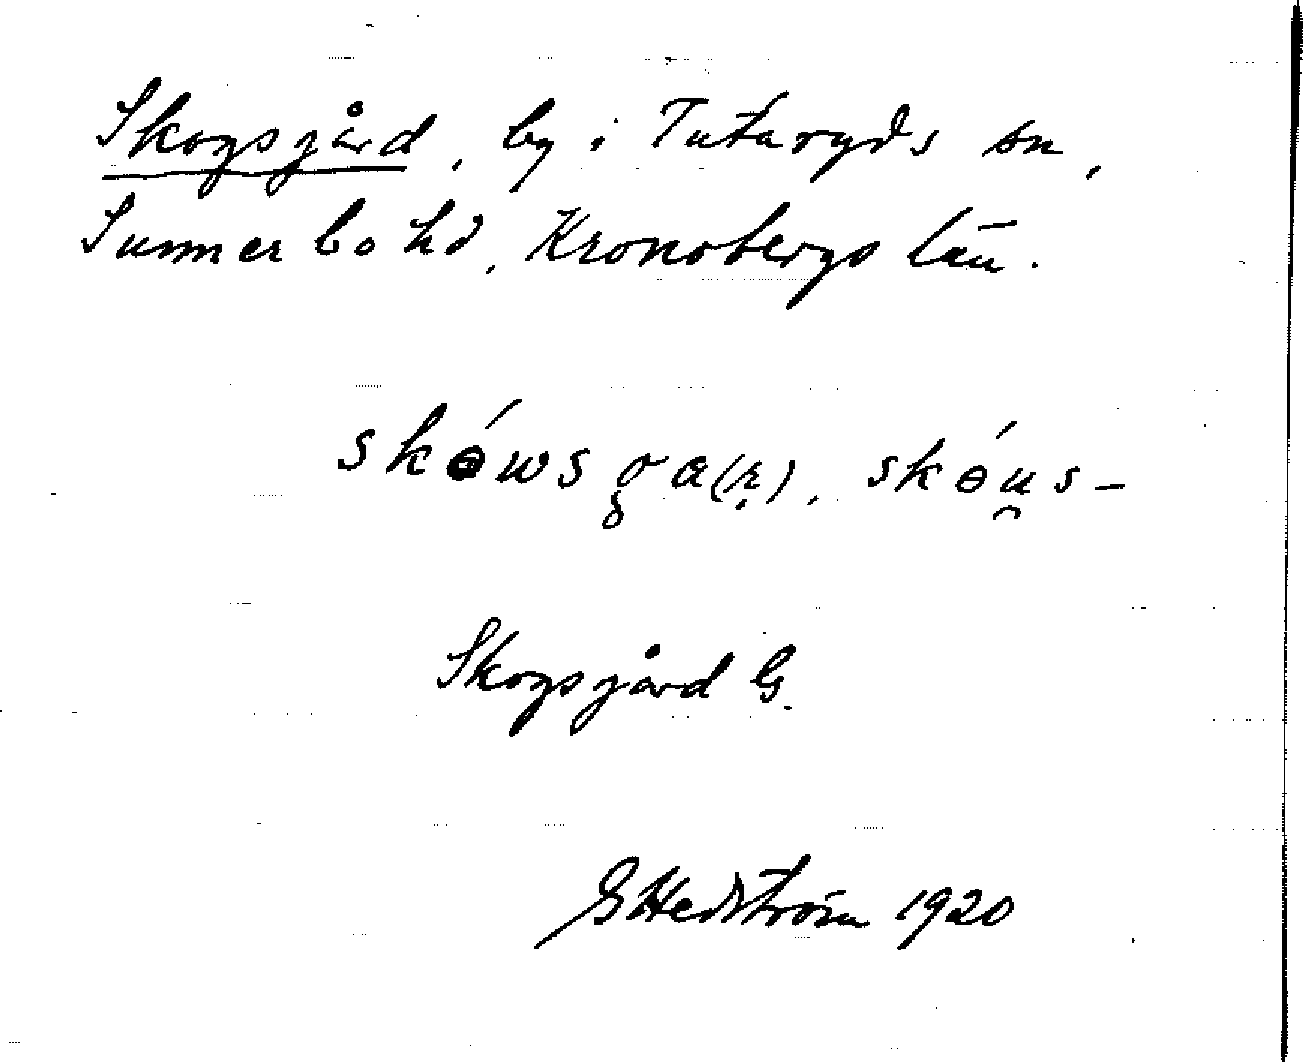 Skogsgård, by i Tutaryds sn,
Sunnerbo hd, Kronobergs län.
skówsga(ṛ), skóu̯s-
Skogsgård G.
G Hedström 1920